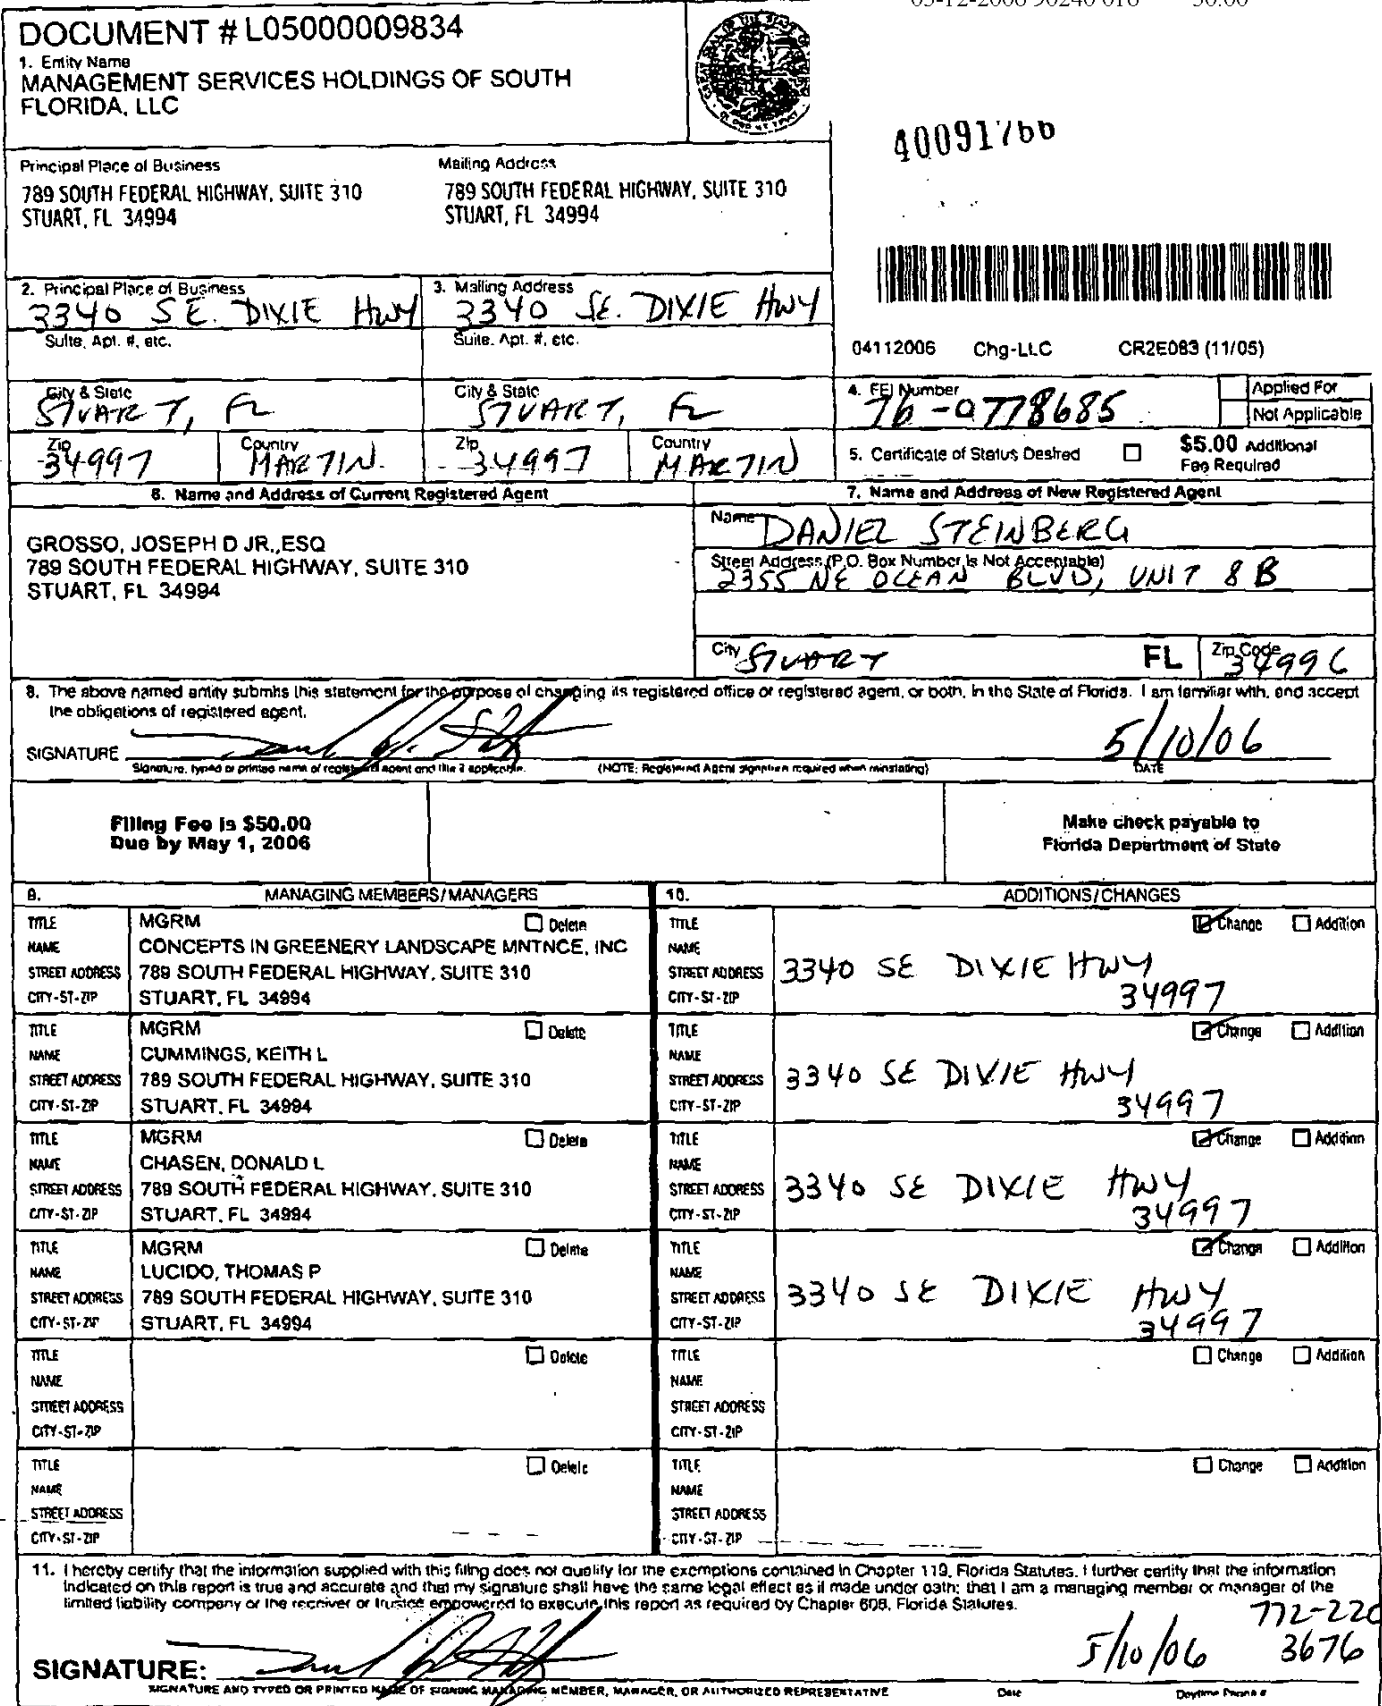 DOCUMENT # L05000009834
1. Entity Name
MANAGEMENT SERVICES HOLDINGS OF SOUTH
FLORIDA, LLC
40091766
Principal Place of Business
789 SOUTH FEDERAL HIGHWAY, SUITE 310
STUART, FL 34994
Mailing Address
789 SOUTH FEDERAL HIGHWAY, SUITE 310
STUART, FL 34994
2. Principal Place of Business
3340 SE. DIXIE HWY
Suite, Apt. #, etc.
City & State
STUART, FL
Zip
34997
Country
MARTIN
3. Mailing Address
3340 SE. DIXIE HWY
Suite, Apt. #, etc.
City & State
STUART, FL
Zip
34997
Country
MARTIN
04112006 Chg-LLC CR2E083 (11/05)
4. FEI Number
76-0778685
Applied For
Not Applicable
5. Certificate of Status Desired
$5.00 Additional
Fee Required
6. Name and Address of Current Registered Agent
GROSSO, JOSEPH D JR.,ESQ
789 SOUTH FEDERAL HIGHWAY, SUITE 310
STUART, FL 34994
7. Name and Address of New Registered Agent
Name DANIEL STEINBERG
Street Address (P.O. Box Number Is Not Acceptable)
2355 NE OCEAN BLVD, UNIT 8B
City STUART FL Zip Code 34996
8. The above named entity submits this statement for the purpose of changing its registered office or registered agent, or both, in the State of Florida. I am familiar with, and accept
the obligations of registered agent.
SIGNATURE 5/10/06
Signature, typed or printed name of registered agent and title if applicable. (NOTE: Registered Agent signature required when reinstating) DATE
Filing Fee is $50.00
Due by May 1, 2006
Make check payable to
Florida Department of State
9. MANAGING MEMBERS/MANAGERS
TITLE MGRM Delete
NAME CONCEPTS IN GREENERY LANDSCAPE MNTNCE, INC
STREET ADDRESS 789 SOUTH FEDERAL HIGHWAY, SUITE 310
CITY-ST-ZIP STUART, FL 34994
TITLE MGRM Delete
NAME CUMMINGS, KEITH L
STREET ADDRESS 789 SOUTH FEDERAL HIGHWAY, SUITE 310
CITY-ST-ZIP STUART, FL 34994
TITLE MGRM Delete
NAME CHASEN, DONALD L
STREET ADDRESS 789 SOUTH FEDERAL HIGHWAY, SUITE 310
CITY-ST-ZIP STUART, FL 34994
TITLE MGRM Delete
NAME LUCIDO, THOMAS P
STREET ADDRESS 789 SOUTH FEDERAL HIGHWAY, SUITE 310
CITY-ST-ZIP STUART, FL 34994
TITLE Delete
NAME
STREET ADDRESS
CITY-ST-ZIP
TITLE Delete
NAME
STREET ADDRESS
CITY-ST-ZIP
10. ADDITIONS/CHANGES
TITLE Change Addition
NAME
STREET ADDRESS 3340 SE DIXIE HWY
CITY-ST-ZIP 34997
TITLE Change Addition
NAME
STREET ADDRESS 3340 SE DIXIE HWY
CITY-ST-ZIP 34997
TITLE Change Addition
NAME
STREET ADDRESS 3340 SE DIXIE HWY
CITY-ST-ZIP 34997
TITLE Change Addition
NAME
STREET ADDRESS 3340 SE DIXIE HWY
CITY-ST-ZIP 34997
TITLE Change Addition
NAME
STREET ADDRESS
CITY-ST-ZIP
TITLE Change Addition
NAME
STREET ADDRESS
CITY-ST-ZIP
11. I hereby certify that the information supplied with this filing does not qualify for the exemptions contained in Chapter 119, Florida Statutes. I further certify that the information
indicated on this report is true and accurate and that my signature shall have the same legal effect as if made under oath; that I am a managing member or manager of the
limited liability company or the receiver or trustee empowered to execute this report as required by Chapter 608, Florida Statutes.
772-220
SIGNATURE: 5/10/06 3676
SIGNATURE AND TYPED OR PRINTED NAME OF SIGNING MANAGING MEMBER, MANAGER, OR AUTHORIZED REPRESENTATIVE Date Daytime Phone #